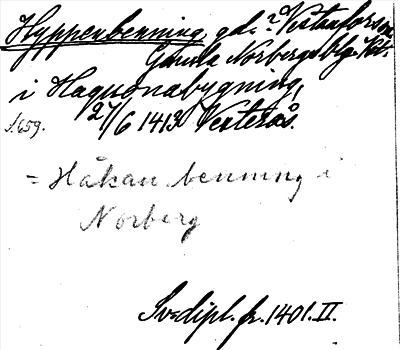 Hyppenbenning, gd. ? Vestanforsm
Gamla Norbergs blg. Kt.
i Haqwonabygning,
27/6 1413 Vesterås.
s. 659.
= Håkan benning i
Norberg
Svedipl. fr. 1401. II.